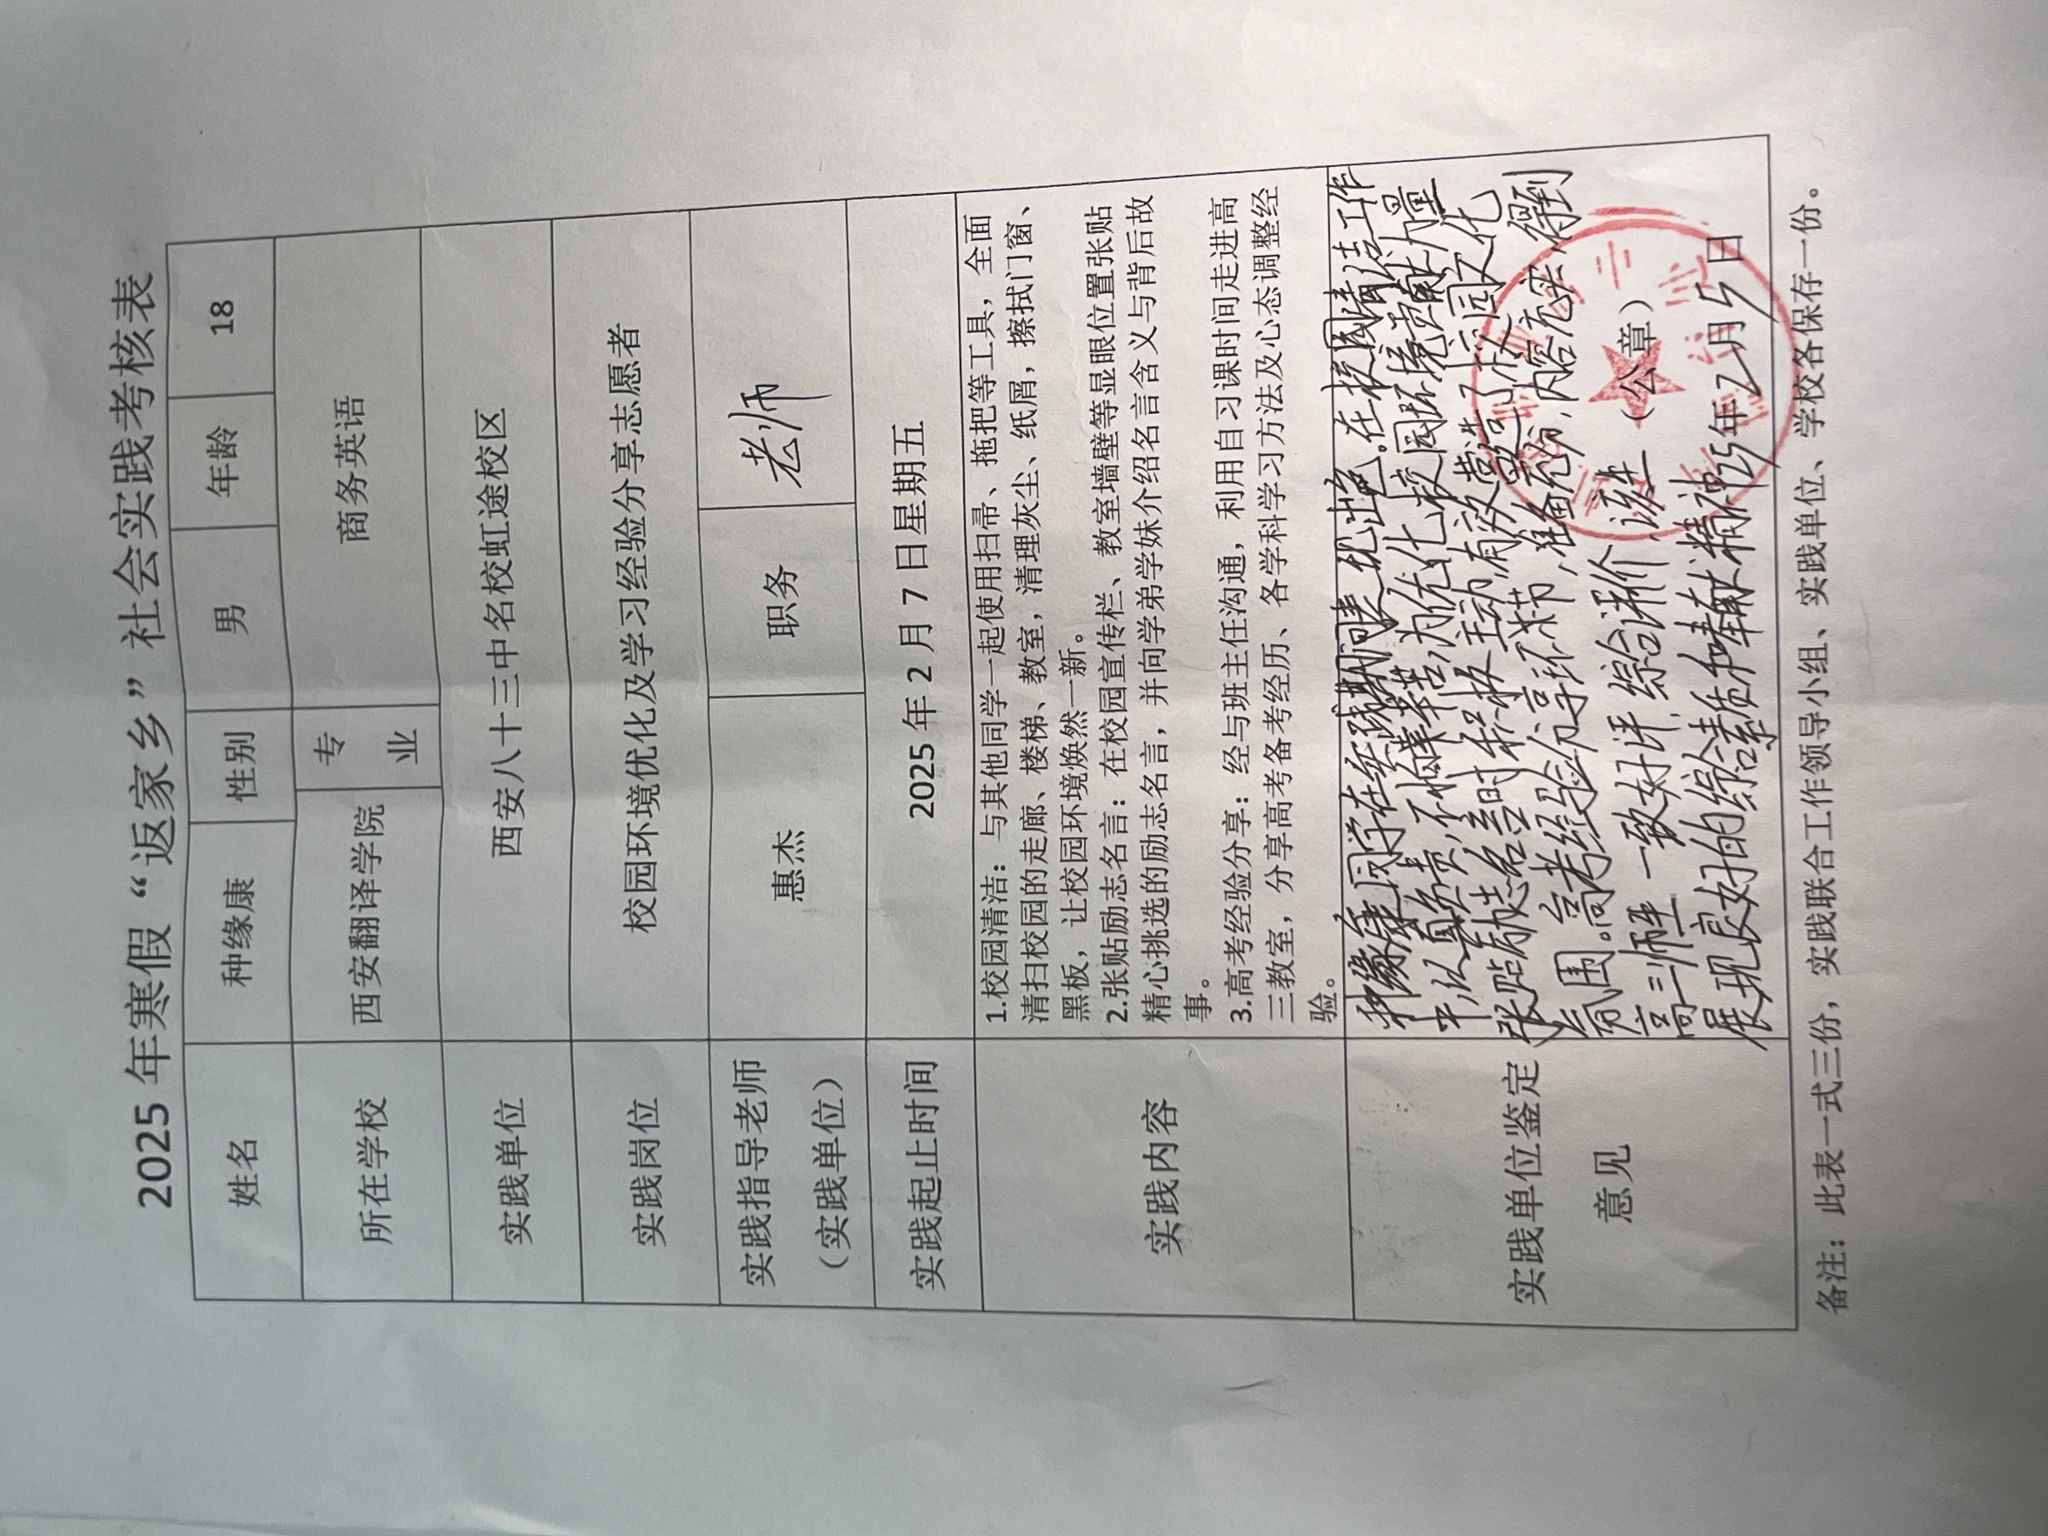 2025 年寒假“返家乡”社会实践考核表
姓名 种缘康 性别 男 年龄 18
所在学校 西安翻译学院 专业 商务英语
实践单位 西安八十三中名校虹途校区
实践岗位 校园环境优化及学习经验分享志愿者
实践指导老师
（实践单位） 惠杰 职务 老师
实践起止时间 2025 年 2 月 7 日星期五
实践内容
1.校园清洁：与其他同学一起使用扫帚、拖把等工具，全面
清扫校园的走廊、楼梯、教室，清理灰尘、纸屑，擦拭门窗、
黑板，让校园环境焕然一新。
2.张贴励志名言：在校园宣传栏、教室墙壁等显眼位置张贴
精心挑选的励志名言，并向学弟学妹介绍名言含义与背后故
事。
3.高考经验分享：经与班主任沟通，利用自习课时间走进高
三教室，分享高考备考经历、各学科学习方法及心态调整经
验。
实践单位鉴定
意见
种缘康同学在实践期间表现出色。在校园清洁工作
中，认真负责，不怕辛苦，为优化校园环境贡献力量
张贴励志名言时积极主动，有效营造了校园文化
氛围。高考经验分享环节，准备充分，内容充实，得到
高三师生一致好评，综合评价，该生
展现良好的综合素质和奉献精神
（公章）
2025年2月5日
备注：此表一式三份，实践联合工作领导小组、实践单位、学校各保存一份。